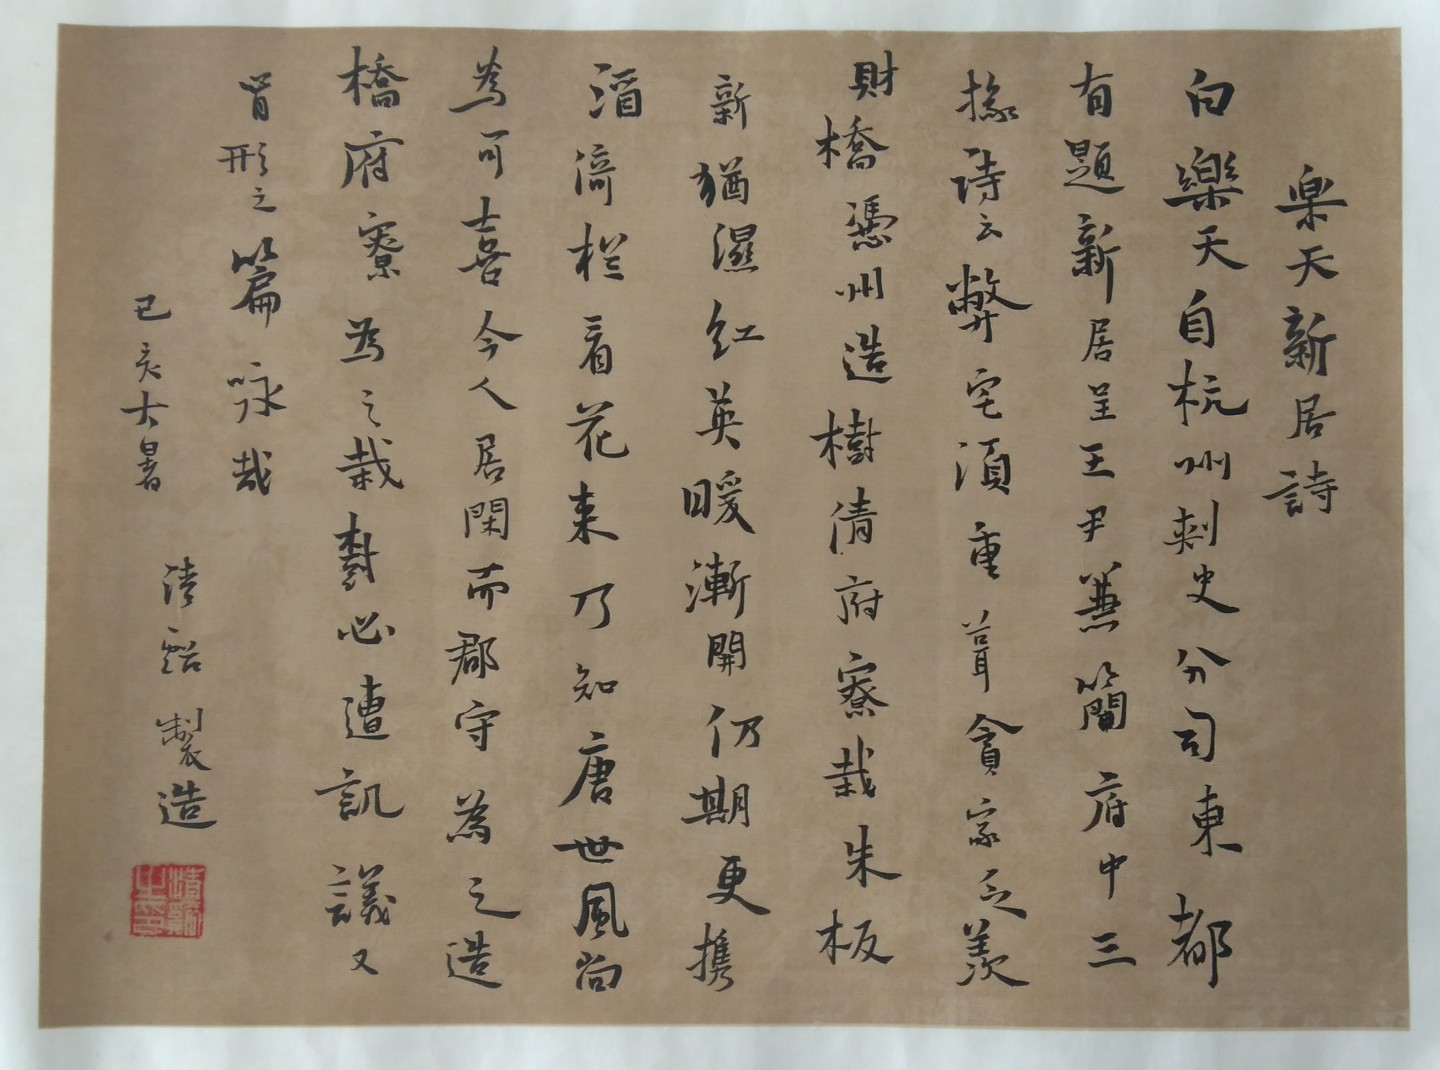 樂天新居詩
白樂天自杭州刺史分司東都
有題新居呈王尹兼簡府中三
掾詩云弊宅須重葺貧家乏羨
財橋憑州造樹倩府寮栽朱板
新猶濕紅英暖漸開仍期更携
酒倚栏看花来乃知唐世風尚
為可喜今人居閑而郡守為之造
橋府寮為之栽樹必遭訊議又
肯形之篇咏哉
己亥大暑
清谿製造